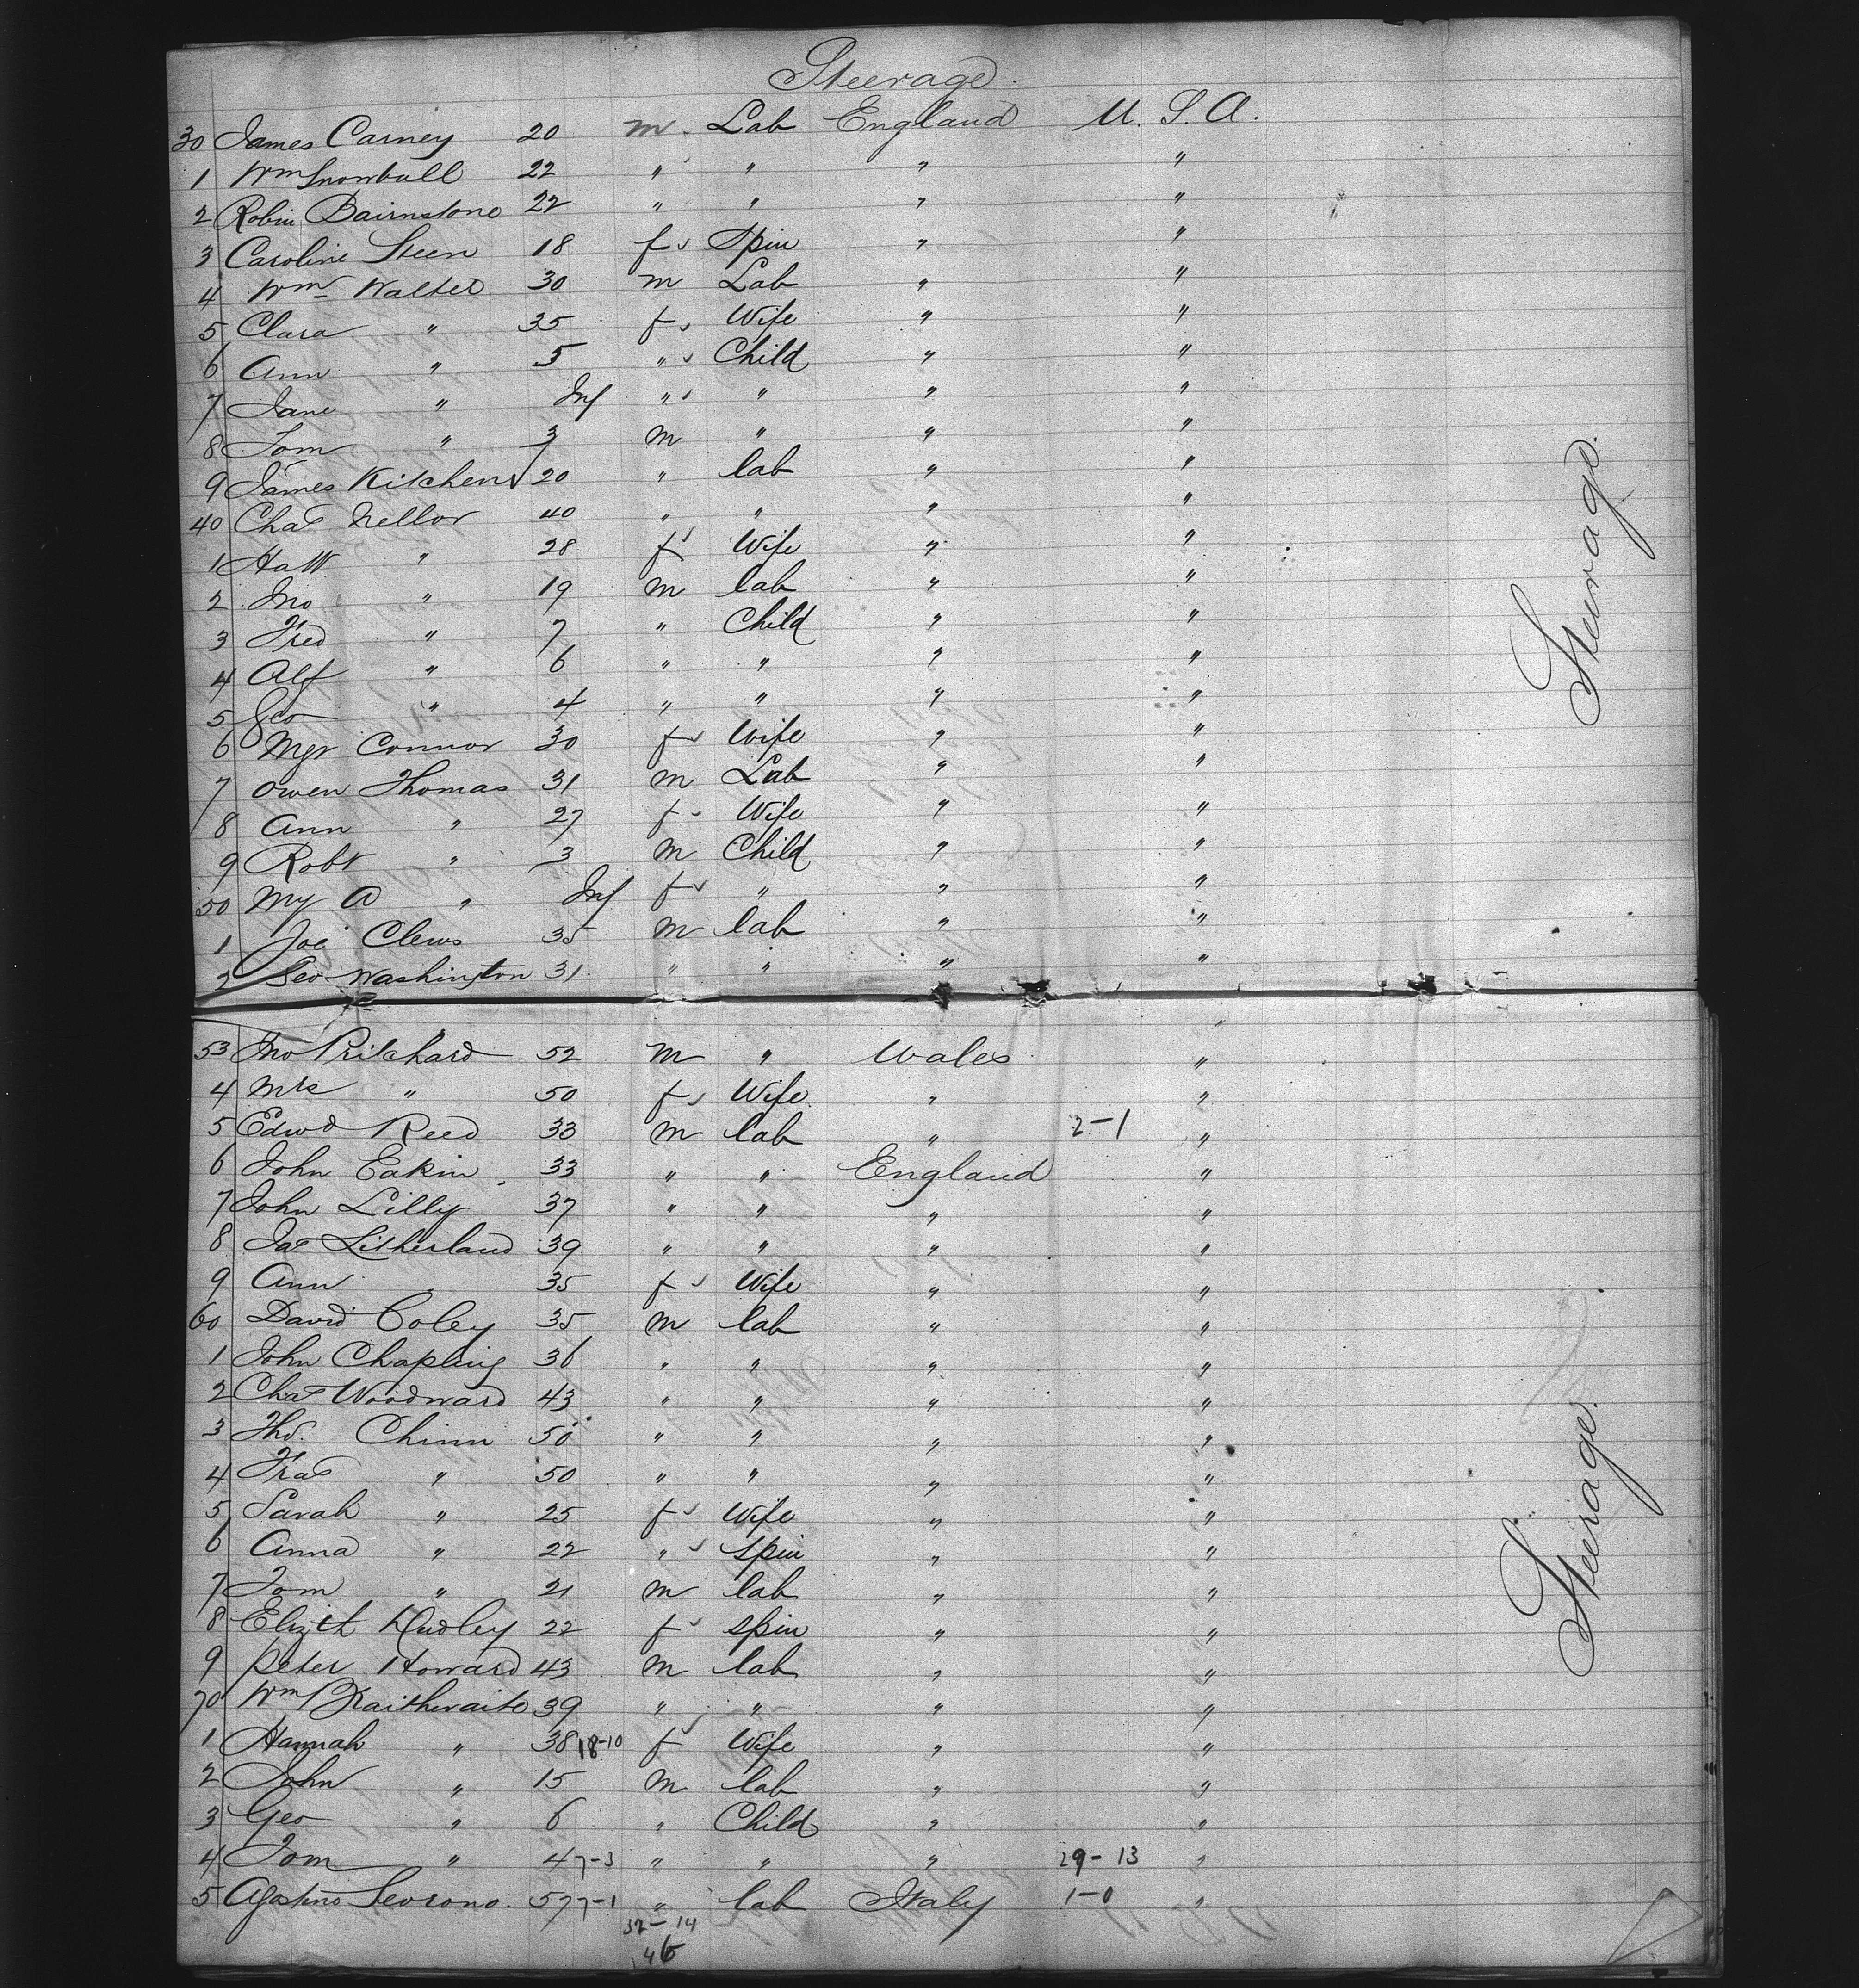 Steerage.
30 James Carney 20 m Lab England U. S. A.
1 Wm Snowball 22 " " " "
2 Robin Bairnstone 22 " " " "
3 Caroline Steen 18 f Spin " "
4 Wm Walter 30 m Lab " "
5 Clara " 35 f Wife " "
6 Ann " 5 " Child " "
7 Jane " Inf " " " "
8 Tom " 3 m " " "
9 James Kitchen 20 " lab " "
40 Chas Mellor 40 " " " "
1 Hatt " 28 f Wife " "
2 Jno " 19 m lab " "
3 Fred " 7 " Child " "
4 Alf " 6 " " " "
5 Geo " 4 " " " "
6 Mgr Connor 30 f Wife " "
7 Owen Thomas 31 m Lab " "
8 Ann " 27 f Wife " "
9 Robt " 3 m Child " "
50 My A " Inf f " " "
1 Joe Clews 35 m lab " "
2 Geo Washington 31 " " " "
53 Jno Pritchard 52 m " Wales "
4 Mrs " 50 f Wife " "
5 Edwd Reed 33 m lab " 2-1 "
6 John Eakin 33 " " England "
7 John Lilly 37 " " " "
8 Jas Litherland 39 " " " "
9 Ann 35 f Wife " "
60 David Coley 35 m lab " "
1 John Chapling 36 " " " "
2 Chas Woodward 43 " " " "
3 Tho. Chinn 50 " " " "
4 Fras " 50 " " " "
5 Sarah " 25 f Wife " "
6 Anna " 22 " Spin " "
7 Tom " 21 m lab " "
8 Elizth Dudley 22 f spin " "
9 Peter Howard 43 m lab " "
70 Wm Braithwaite 39 " " " "
1 Hannah " 38 18-10 f Wife " "
2 John " 15 m lab " "
3 Geo " 6 " Child " "
4 Tom " 4 7-3 " " " 29-13 "
5 Agostino 57 7-1 " lab Italy 1-0 "
32-14
46
Steerage.
Steerage.